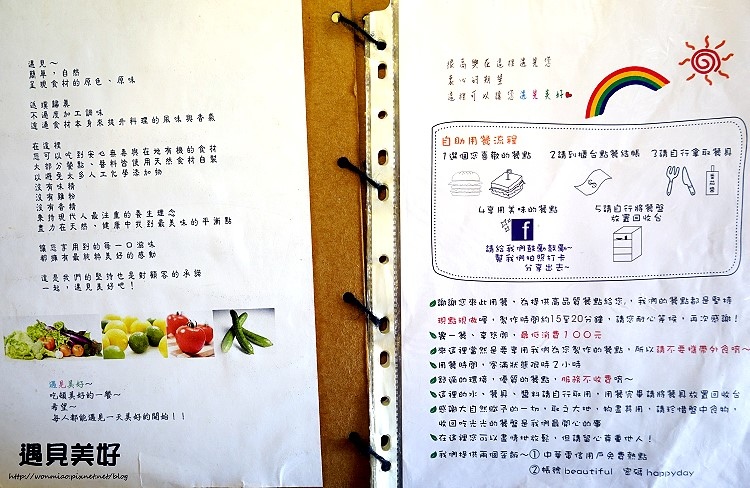 遇見～
簡單，自然
呈現食材的原色、原味
返璞歸真
不過度加工調味
透過食材本身來提升料理的風味與香氣
在這裡
您可以吃到安心無毒與在地有機的食材
大部分餐點、醬料皆使用天然食材自製
以避免太多人工化學添加物
沒有味精
沒有雞粉
沒有香精
秉持現代人最注重的養生理念
盡力在天然、健康中找到最美味的平衡點
讓您享用到的每一口滋味
都擁有最純粹美好的感動
這是我們的堅持也是對顧客的承諾
一起，遇見美好吧！
遇見美好～
吃頓美好的一餐～
希望～
每人都能遇見一天美好的開始！！
遇見美好
http://wonmiao.pixnet.net/blog
很高興在這裡遇見您
衷心的期望
這裡可以讓您遇見美好
自助用餐流程
1選個您喜歡的餐點 2請到櫃台點餐結帳 3請自行拿取餐具
4享用美味的餐點 5請自行將餐盤
放置回收台
f
請給我們鼓勵鼓勵~
幫我們拍照打卡
分享出去~
謝謝您來此用餐，為提供高品質餐點給您，我們的餐點都是堅持
現點現做喔，製作時間約15至20分鐘，請您耐心等候，再次感謝！
最低消費100元
來這裡當然是要享用我們為您製作的餐點，所以請不要攜帶外食喲～
用餐時間，客滿狀態限時2小時
舒適的環境，優質的餐點，服務不收費喲～
這裡的水、餐具、醬料請自行取用，用餐完畢請將餐具放置回收台
感謝大自然賜予的一切，取之大地，物盡其用，請珍惜盤中食物，
收回吃光光的餐盤是我們最開心的事
在這裡您可以盡情地放鬆，但請留心尊重他人！
我們提供兩個 ～①中華電信用戶免費熱點
②帳號beautiful 密碼happyday